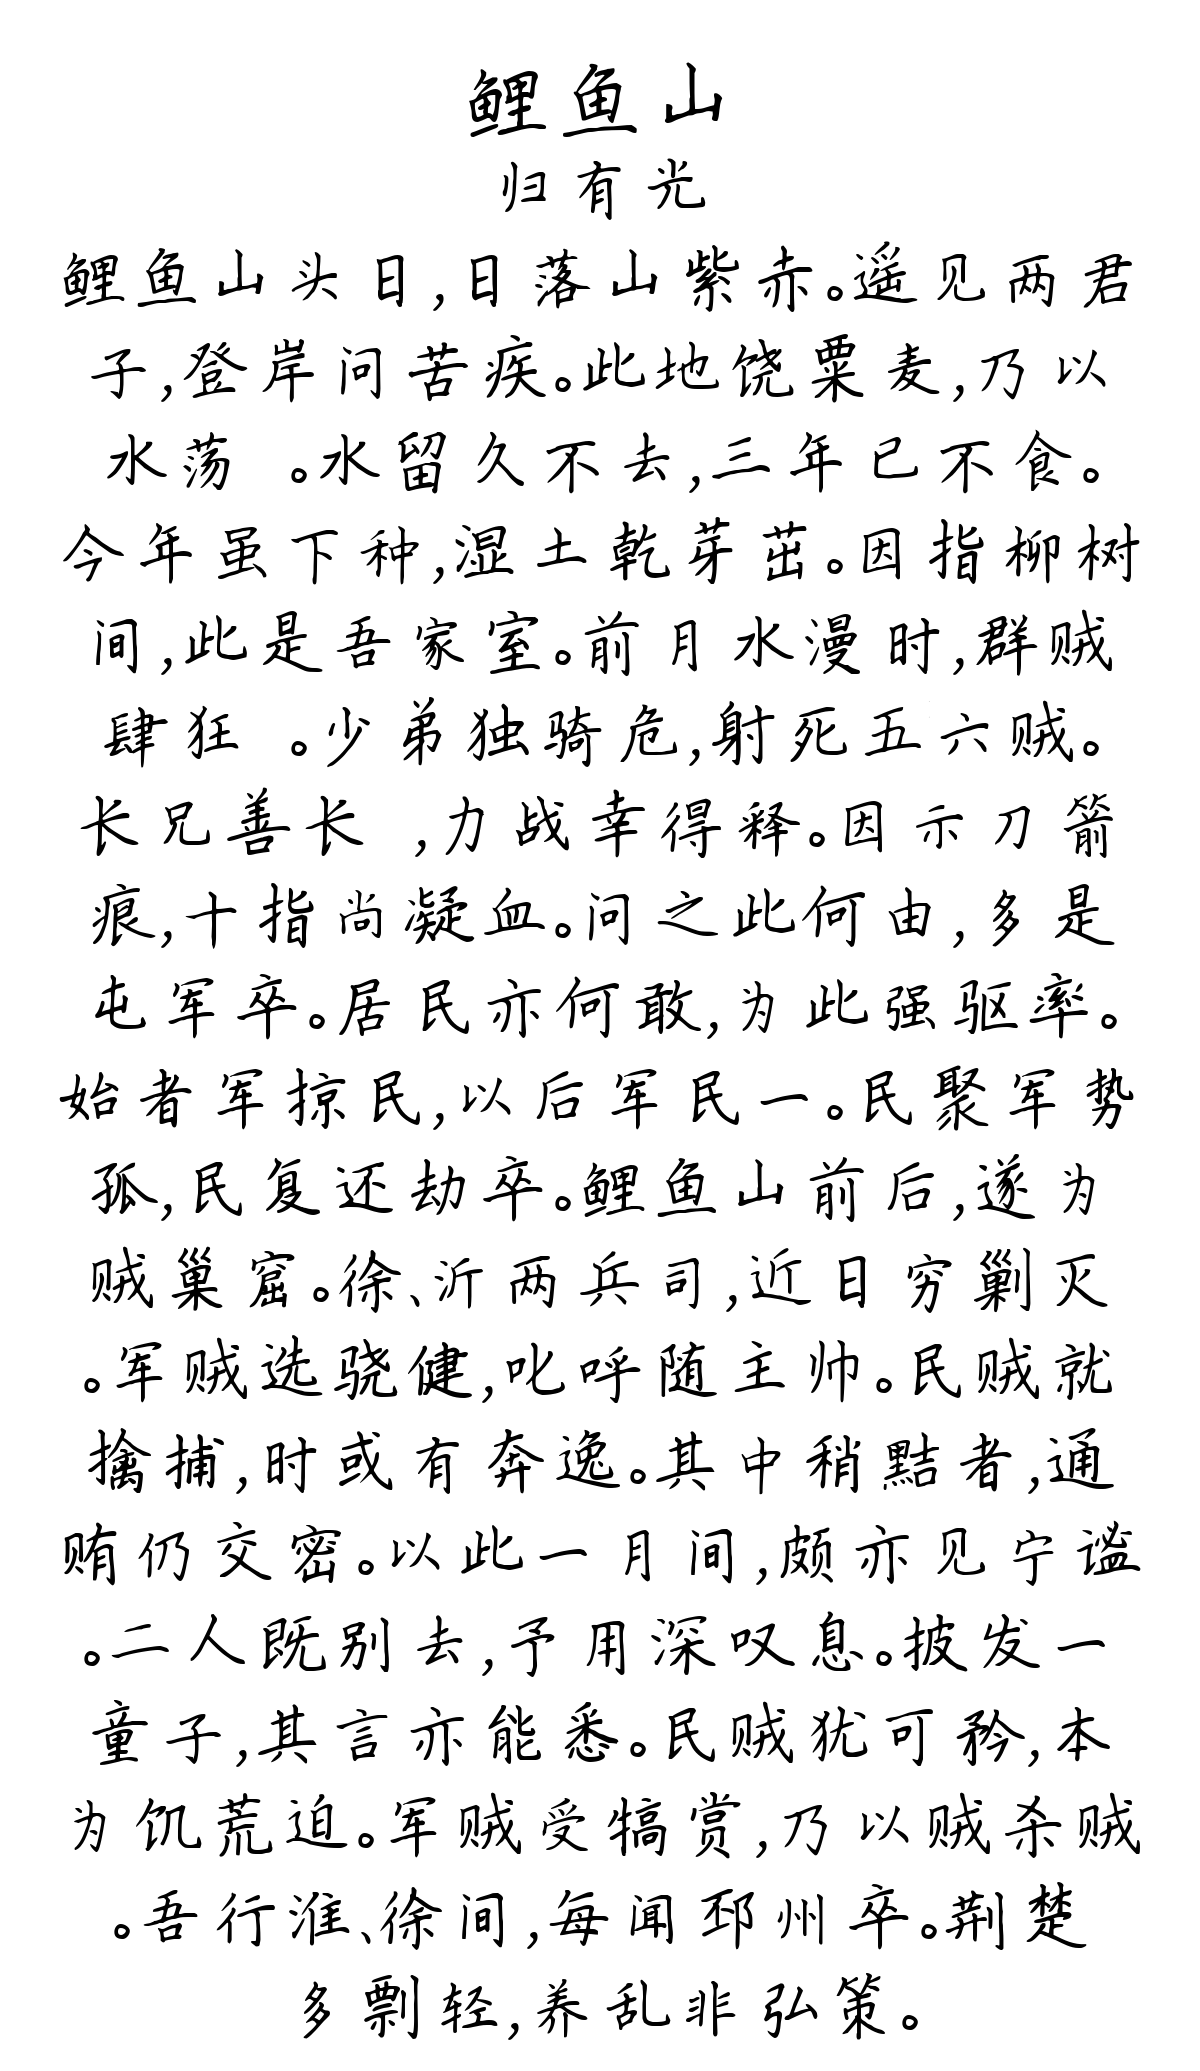 鲤鱼山
归有光
鲤鱼山头日,日落山紫赤。遥见两君
子,登岸问苦疾。此地饶粟麦,乃以
水荡 。水留久不去,三年已不食。
今年虽下种,湿土乾芽茁。因指柳树
间,此是吾家室。前月水漫时,群贼
肆狂 。少弟独骑危,射死五六贼。
长兄善长 ,力战幸得释。因示刀箭
痕,十指尚凝血。问之此何由,多是
屯军卒。居民亦何敢,为此强驱率。
始者军掠民,以后军民一。民聚军势
孤,民复还劫卒。鲤鱼山前后,遂为
贼巢窟。徐、沂两兵司,近日穷剿灭
。军贼选骁健,叱呼随主帅。民贼就
擒捕,时或有奔逸。其中稍黠者,通
贿仍交密。以此一月间,颇亦见宁谧
。二人既别去,予用深叹息。披发一
童子,其言亦能悉。民贼犹可矜,本
为饥荒迫。军贼受犒赏,乃以贼杀贼
。吾行淮、徐间,每闻邳州卒。荆楚
多剽轻,养乱非弘策。